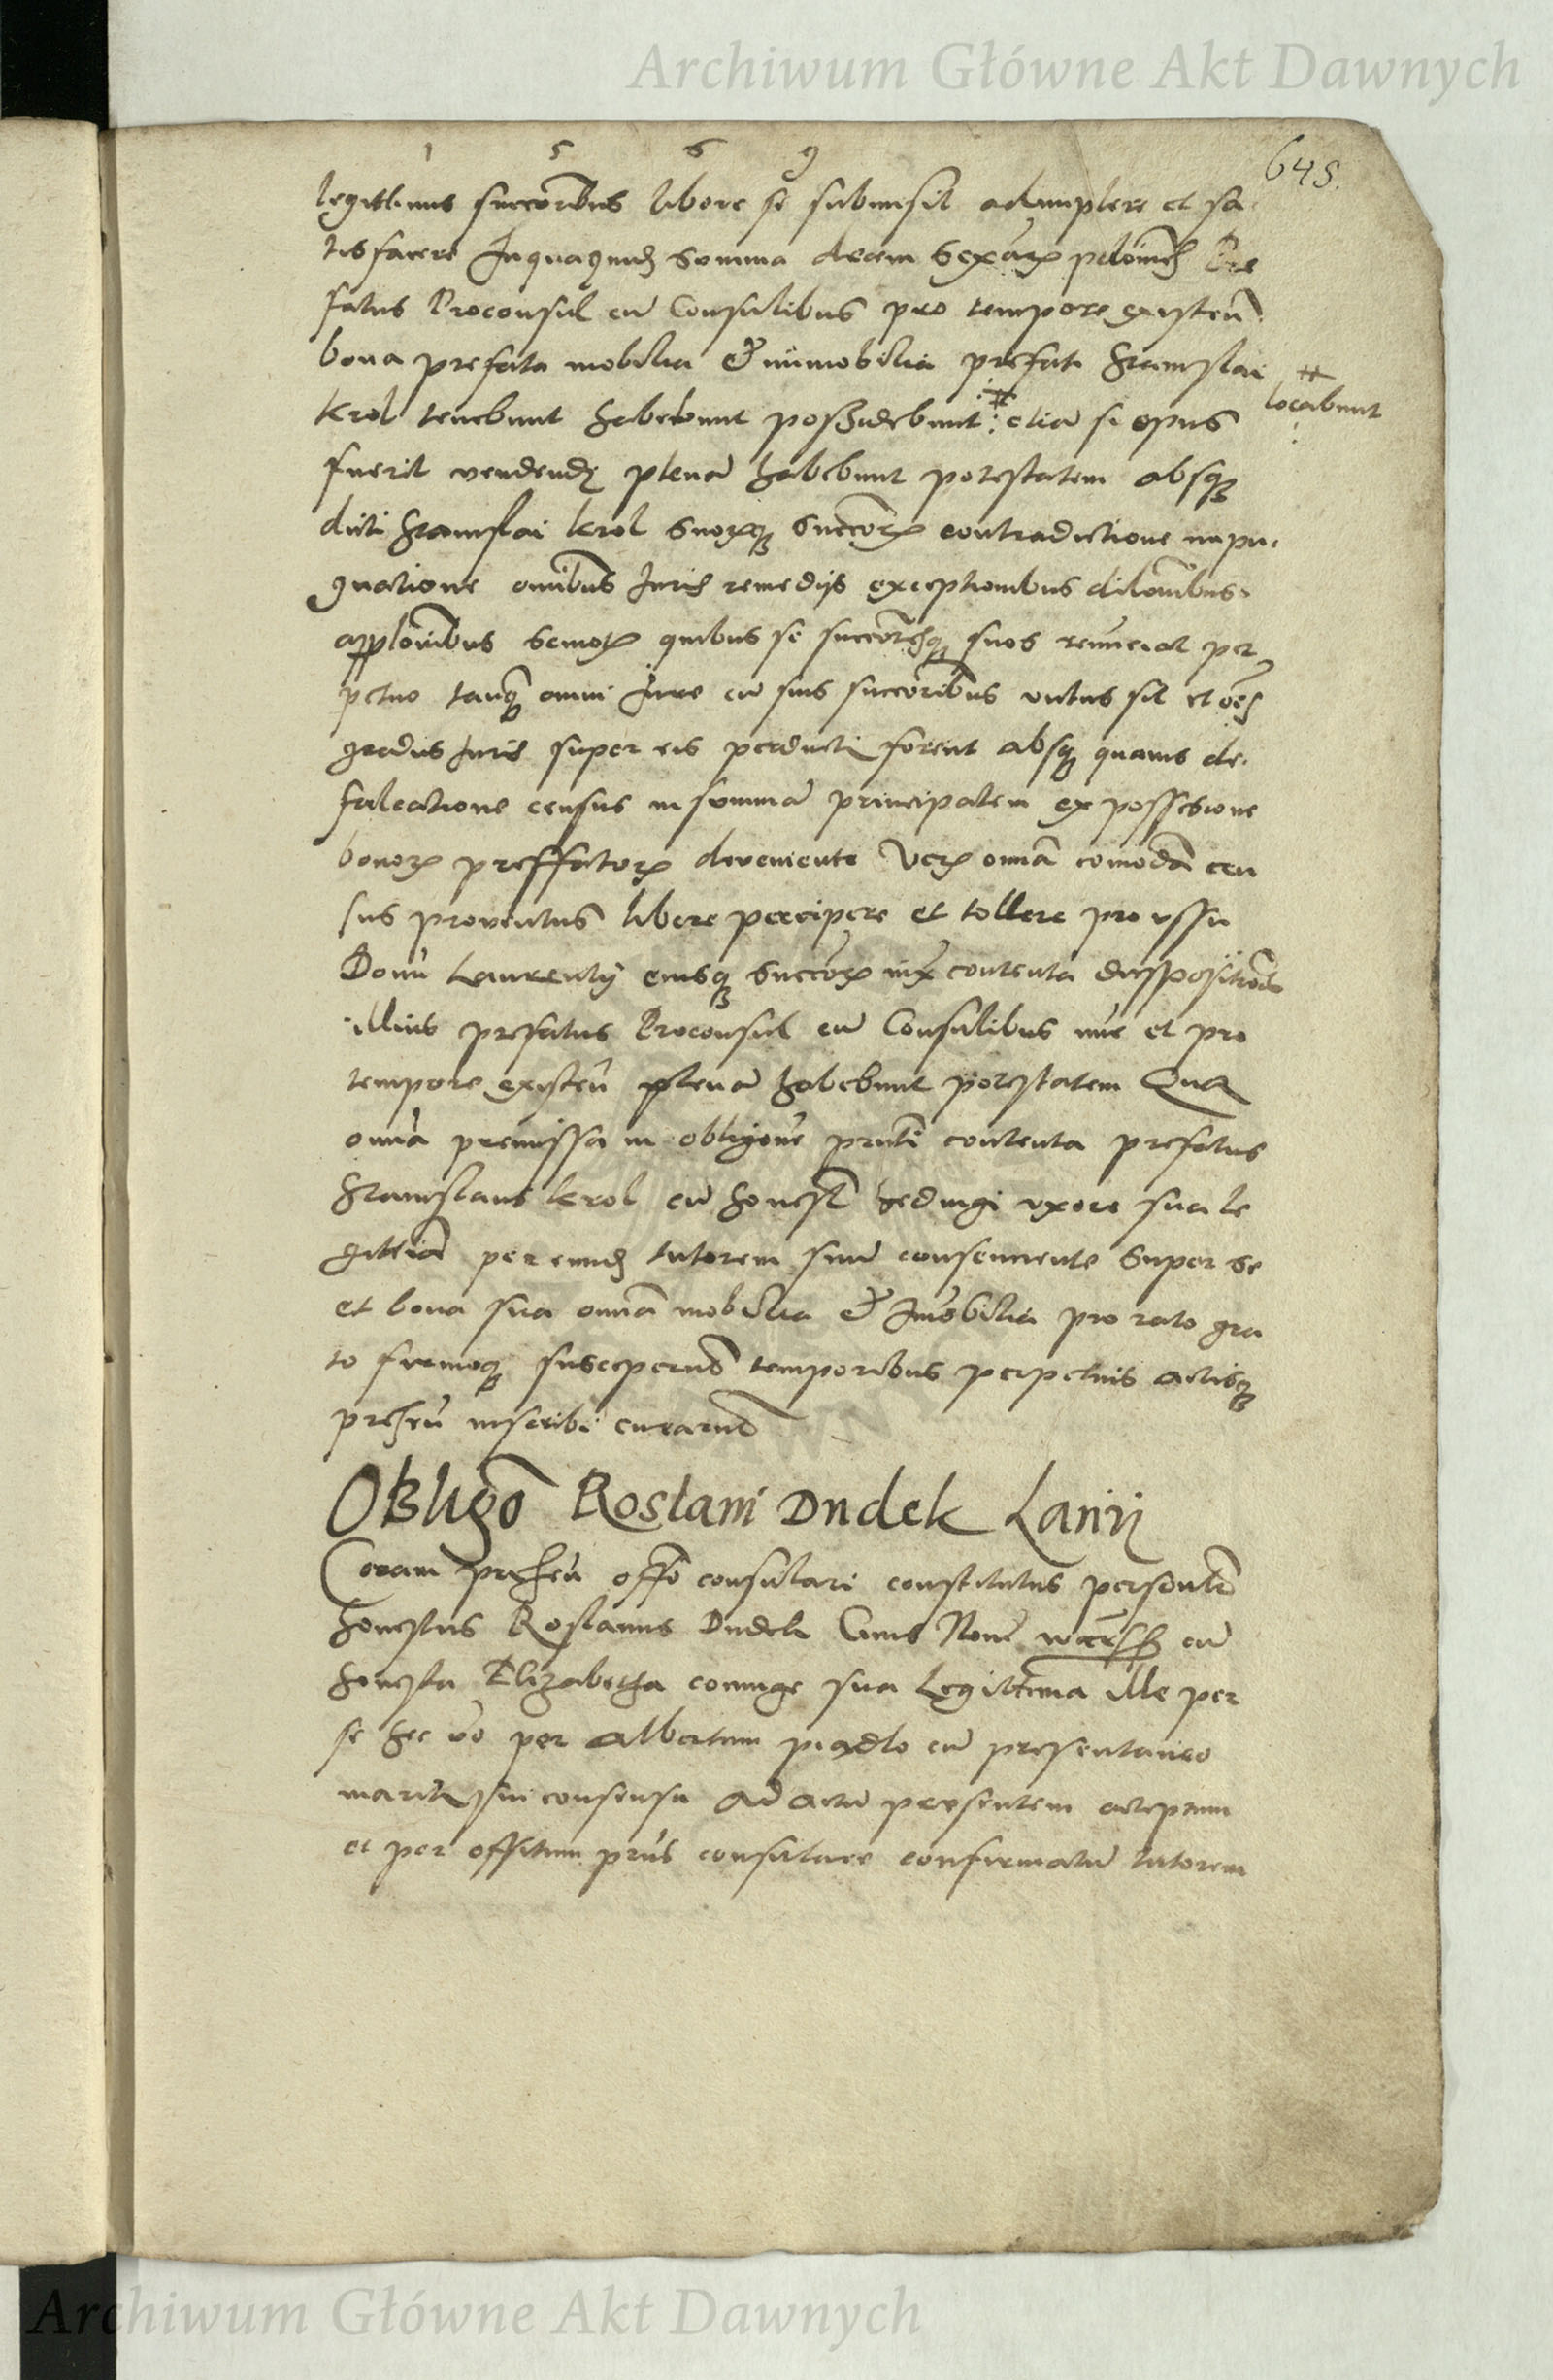 Archiwum Główne Akt Dawnych
1 5 6 9
645.
legittimis succoribus libere se submisit adimplere et sa
tisfacere In quaquid summa decem sexar
fatus Proconsul cu Consulibus pro tempore existen
bona prefata mobilia & immobilia prefati Stanislai
# locabunt
Krol tenebunt habebunt possidebunt # etia si opus
fuerit vendendi plena habebunt potestatem absq
dicti Stanislai Krol suorq succor contradictione impu
gnatione omibus Juris remedijs exceptionibus dilonibus
applonibus semot quibus se succoresq suos renunciat per
petuo tanq omni Jure cu suis succoribus victus sit et oes
gradus Juris super eis perducti forent absq quavis de
falcatione census in summa principalem ex possesione
bonor preffator deveniente Ver omia comoda cen
sus proventus libere percipere et tollere pro ussu
Domi Laurentij eiusq succor iux contenta dispositionis
illius prefatus Proconsul cu Consulibus nuc et pro
tempore existen plena habebunt potestatem Qua
omia premissa in obligone pnti contenta prefatus
Stanislaus Krol cu honest Hedvigi uxore sua le
gittia per eund tutorem suu consenciente super se
et bona sua omia mobilia & Imobilia pro rato gra
to firmoq susceperut temporibus perpetuis actisq
presen inscribi curarut
Obligo Roslani Dudek Lanij
Coram presen offo consulari constitutus personlr
honestus Roslanus Dudek Civis Nove cu
honesta Elizabetha coniuge sua Legittima ille per
se hec vo per Albertum cu presentaneo
mariti sui consensu ad actu presentem acceptum
et per offitium prius consulare confirmatu tutorem
Archiwum Główne Akt Dawnych